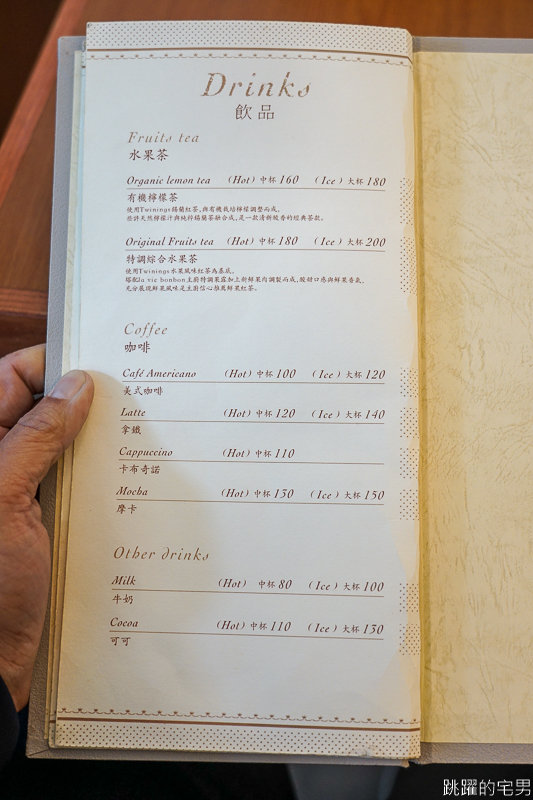 Drinks
飲品
Fruits tea
水果茶
Organic lemon tea (Hot) 中杯 160 (Ice) 大杯 180
有機檸檬茶
使用Twinings錫蘭紅茶,與有機栽培檸檬調整而成,
些許天然檸檬汁與純粹錫蘭茶融合成,是一款清新微香的經典茶飲。
Original Fruits tea (Hot) 中杯 180 (Ice) 大杯 200
特調綜合水果茶
使用Twinings水果風味紅茶為基底,
搭配la vie bonbon主廚特調果露和上新鮮果肉調製而成,酸甜口感與鮮果香氣,
充分展現鮮果風味是主廚信心推薦鮮果紅茶。
Coffee
咖啡
Café Americano (Hot) 中杯 100 (Ice) 大杯 120
美式咖啡
Latte (Hot) 中杯 120 (Ice) 大杯 140
拿鐵
Cappuccino (Hot) 中杯 110
卡布奇諾
Mocha (Hot) 中杯 130 (Ice) 大杯 150
摩卡
Other drinks
Milk (Hot) 中杯 80 (Ice) 大杯 100
牛奶
Cocoa (Hot) 中杯 110 (Ice) 大杯 130
可可
跳躍的宅男